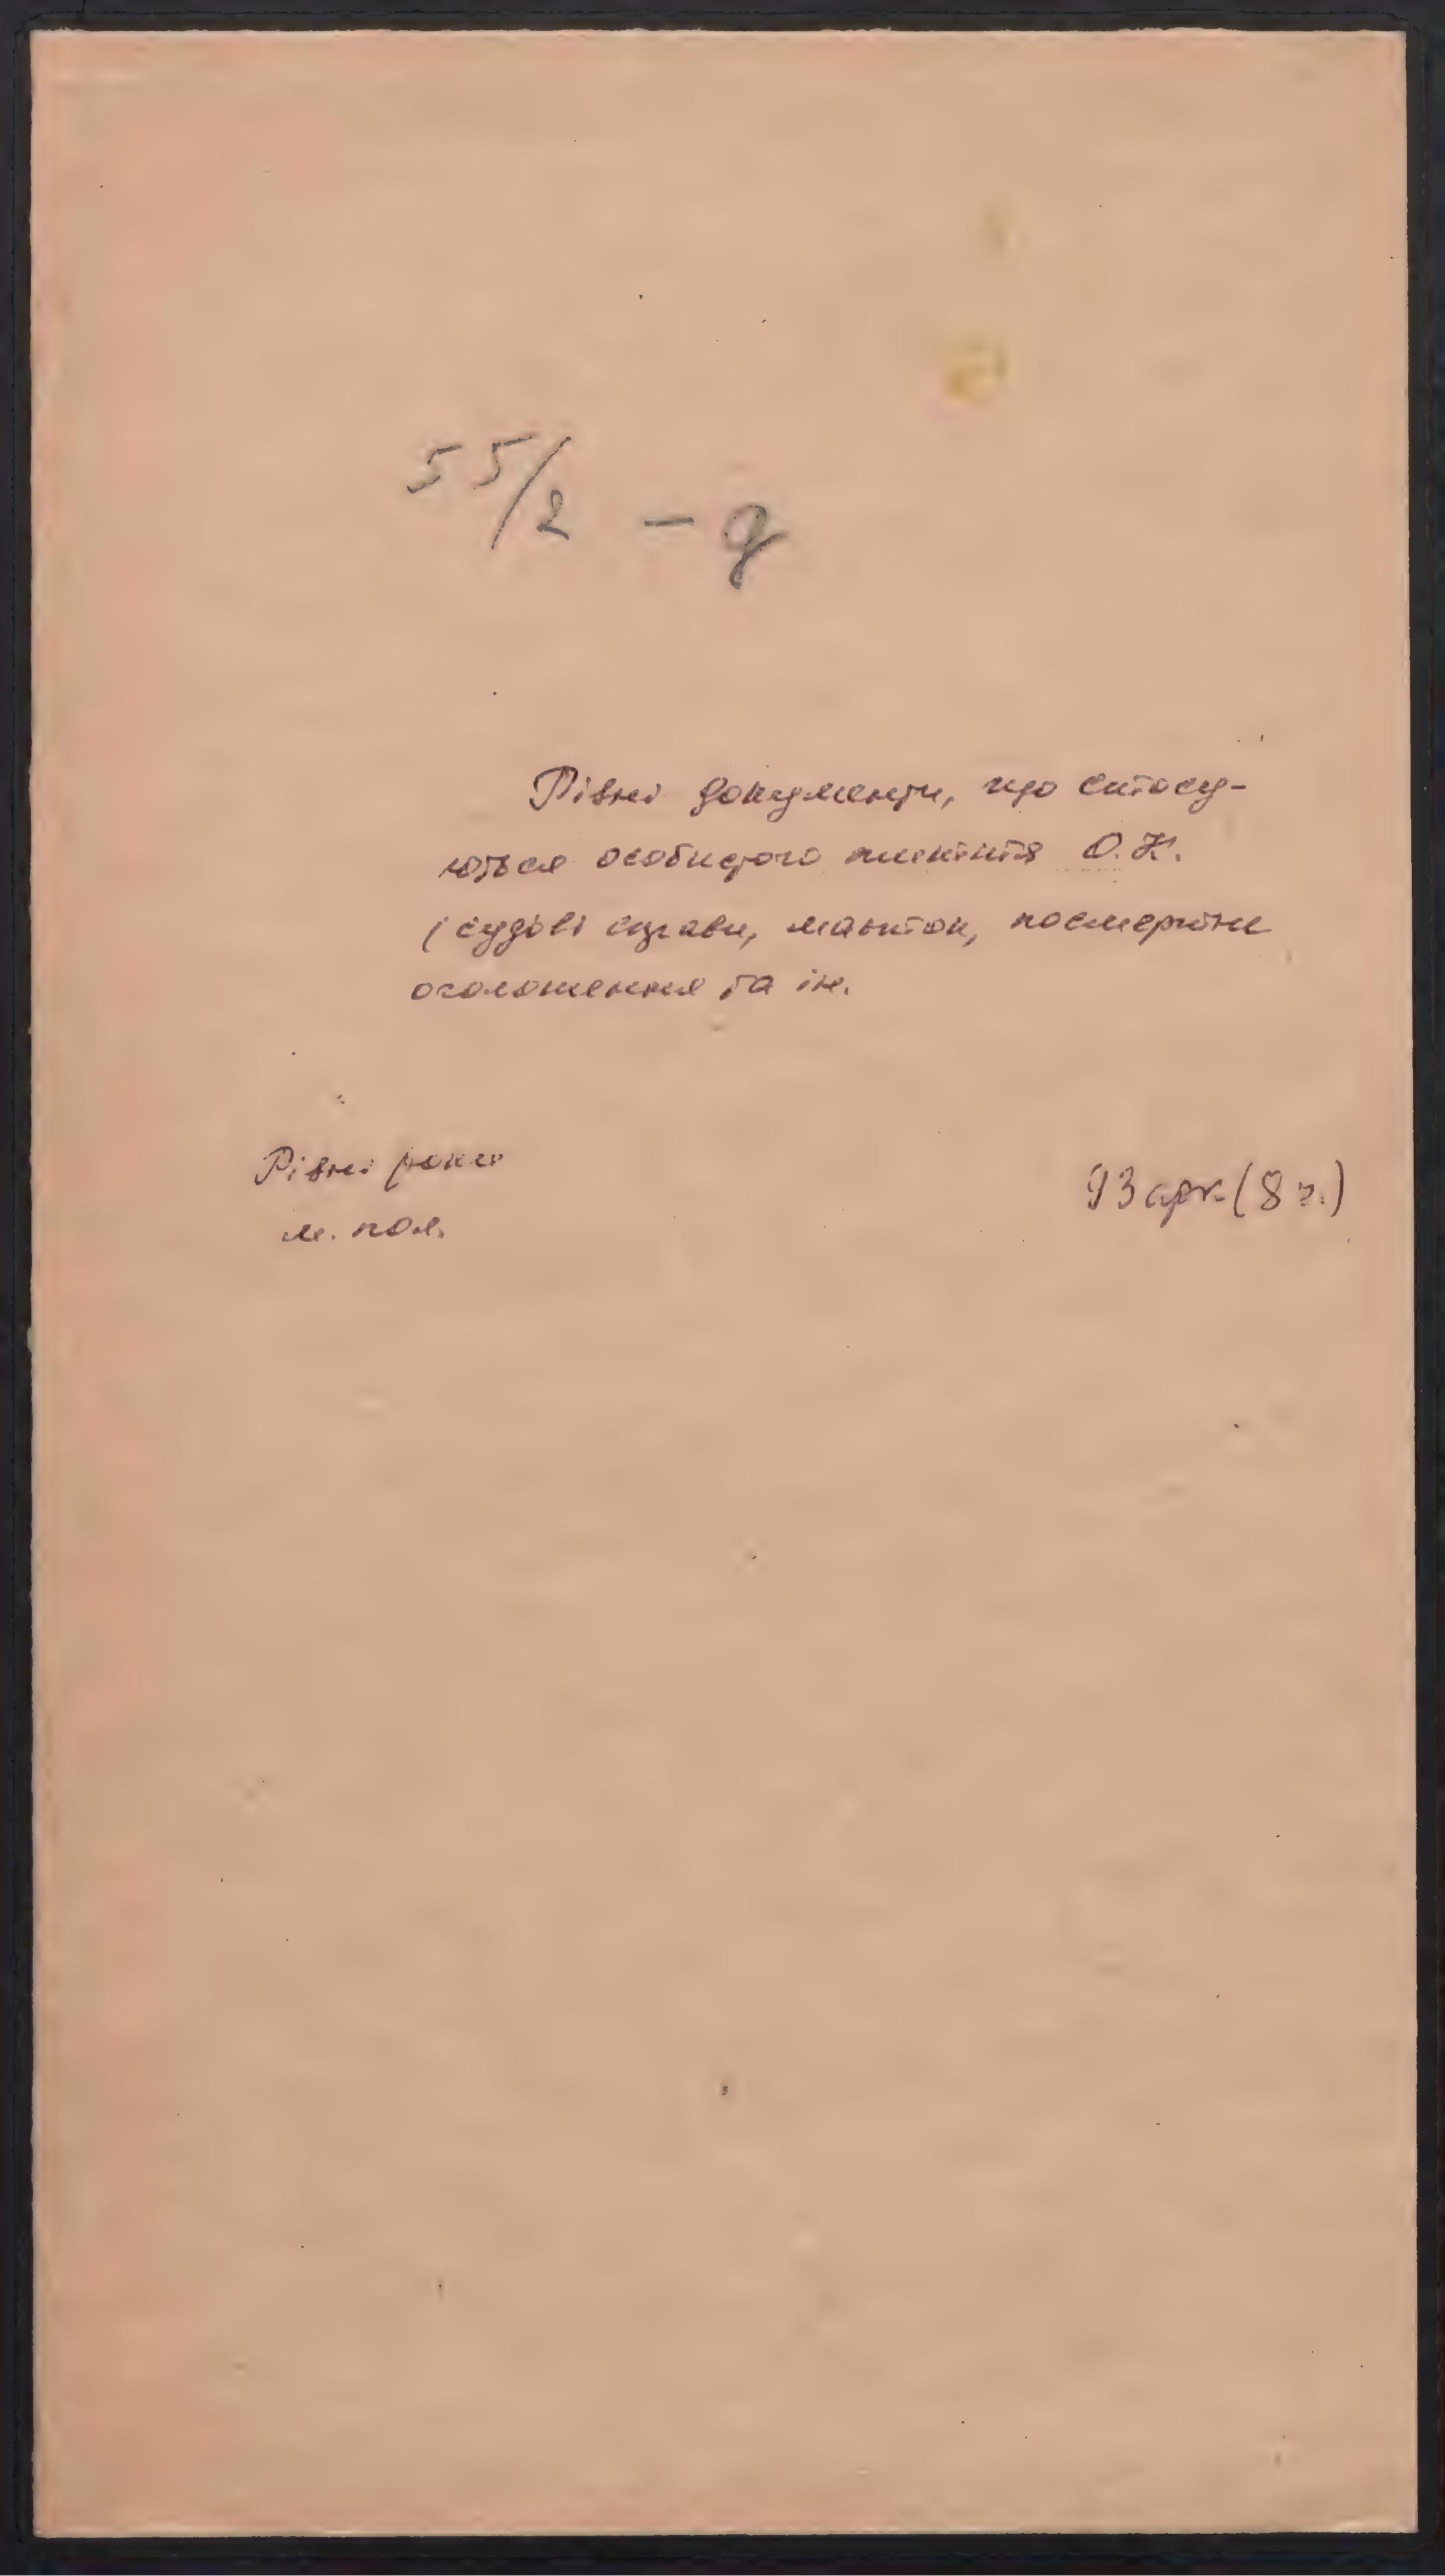 55/2 – д
Різні документи, що стосу-
ються особистого життя О.К.
(судові справи, маєток, посмертне
оголошення та ін.
Різні роки
м. пол.
93 арк. (8 п.)